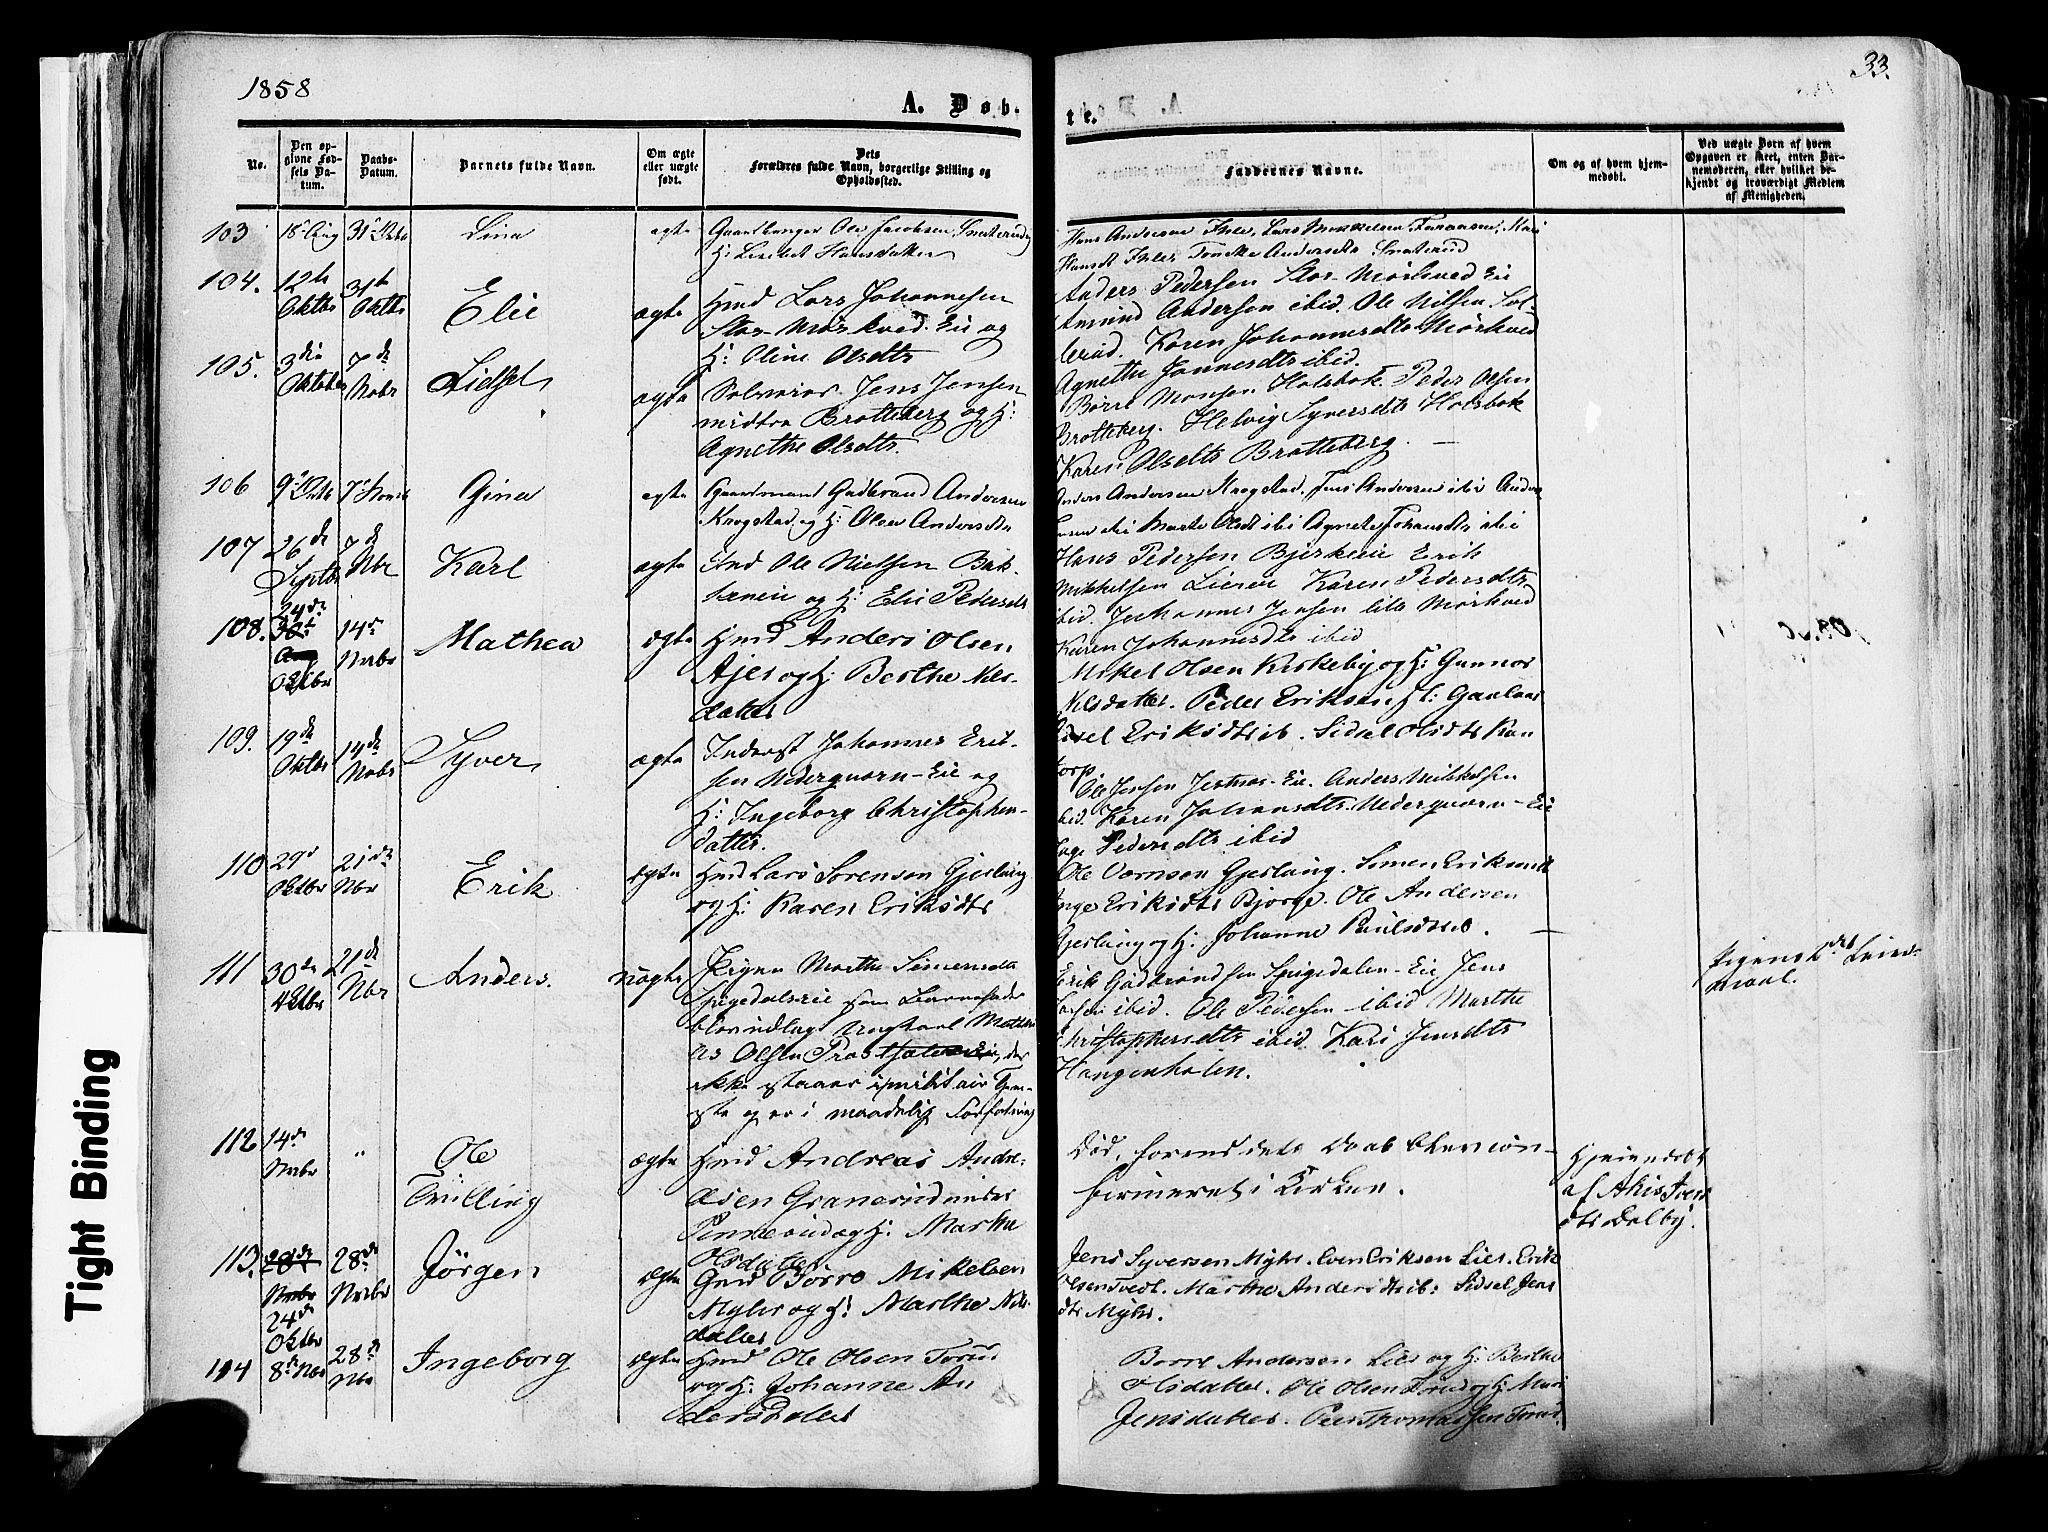 1858
33.
A. Døb-
te.
No.
Den op-
givne Fød-
sels Da-
tum.
Daabs-
Datum.
Barnets fulde Navn.
Om ægte
eller uægte
født.
Dets
Forældres fulde Navn, borgerlige Stilling og
Opholdssted.
Faddernes Navne.
Om og af hvem hjem-
medøbt.
Ved uægte Børn af hvem
Opgaven er skeet, enten Bar-
nemoderen, eller hvilket be-
kjendt og troværdigt Medlem
af Menigheden.
103
18 Aug
31 Oktb
Lina
ægte
Gaardbruger Ole Jacobsen Smterud
H: Lisebet Hansdatter
Hans Andersen Ihle, Lars Mikkelsen
Hansdt Ihler Andersdtr Smterud
104.
12te
Oktbr
31te
Oktbr
Elie
ægte
Hmd Lars Johannesen
Stor-Mörkved Eie og
H: Oline Olsdtr
Anders Pedersen Stor Mörkved Eie
Amund Andersen ibid. Ole Nilsen Sol-
berud. Karen Johannesdtr Mörkved
Agnethe Johannesdtr ibid.
105.
3die
Oktober
7de
Nobr
Lidsel
ægte
Selveier Jens Jensen
midtre Brotteberg og H:
Agnethe Olsdtr.
Börre Monsen Holsbok Peder Olsen
Brotteberg. Helvig Syversdtr Holsbok
Karen Olsdtr Brotteberg. —
106
9 Oktb
7 Novb
Gina
ægte
Gaardmand Gudbrand Andersen
Krogstad og H: Olea Andersdtr
Anders Andersen Krogstad, Jens Andersen ibi Anders
ibi Marte Olsdt ibi Agnete Johansdtr ibi
107
26de
Septbr
7de
Nbr
Karl
ægte
Ind Ole Nielsen Bak-
keneie og H: Elie Pedersdtr
Hans Pedersen Bjerkeeie Erik
Mikkelsen Liereie Karen Pedersdtr
ibid. Johannes Jensen lille Mörkved
Karen Johannesdtr ibid
108.
24de
30te
Aug
Oktbr
14de
Novbr
Mathea
ægte
Hmd Anders Olsen
Ajer og H: Berthe Nils-
datter
Mikel Olsen Kirkeby og H: Gunnor
Nilsdatter. Peder Eriksen
Eriksdtr ib. Sidsel Olsdtr Kan
torp
109.
19de
Oktbr
14de
Nobr
Syver
ægte
Inderst Johannes Erik-
sen Nederqvarn-Eie og
H: Ingeborg Christophers-
datter.
Ole Jensen Eie. Anders Mikkelsen
ibid. Karen Johansdtr Nederqvarn-Eie
Pedersdtr ibid
110
29d
Oktbr
21de
Nbr
Erik
ægte
Hmd Lars Sörensen Gjeslang
og H: Karen Eriksdtr
Ole Gjeslang. Simen Eriksen
Inger Eriksdtr Bjorge. Ole Andersen
Gjeslang og H: Johanne Paulsdtr.
111
30de
Oktbr
21de
Nbr
Anders.
uægte
Pigen Marthe Simensdtr
Spigedalseie som Barnefader
blev udlagt Ungkarl Mathi-
as Olsen Prosthalen Eie, der
ikke staaer i militair Tjene-
ste og er i maadelig Forfatning
Erik Gudbrandsen Spigedalen-Eie, Jens
ibid. Ole Pedersen ibid Marthe
Christophersdtr ibid Kari Jensdtr
Haugenholen.
Pigens 1ste Leier-
maal.
112
14de
Novbr
"
Ole
Tvilling
ægte
Hmd Andreas Andre-
asen Graneriid under
Pinneriid og H: Marthe
Olsdatter
Död, forend dets Daab blev con-
firmeret i Kirken.
Hjemmedøbt
af Akis Iver
dtr Dalby.
113.
28de
Novbr
24de
Oktbr
28de
Novbr
Jörgen
ægte
Gmd Börre Mikelsen
Myhr og H: Marthe Nils-
datter
Jens Syversen Myhr. Even Eriksen Lier. Erik
Olsen Tvedt. Marthe Andersdtr ib: Sidsel Jens
dtr Myhr.
114
8de Nbr
28de
Nbr
Ingeborg
ægte
Hmd Ole Olsen Torud
og H: Johanne An
dersdatter
Borre Andersen Lier og H: Berthe
Olsdatter. Ole Olsen Torud og H: Mari
Jensdatter. Peer Thomassen Torud.
Tight Binding